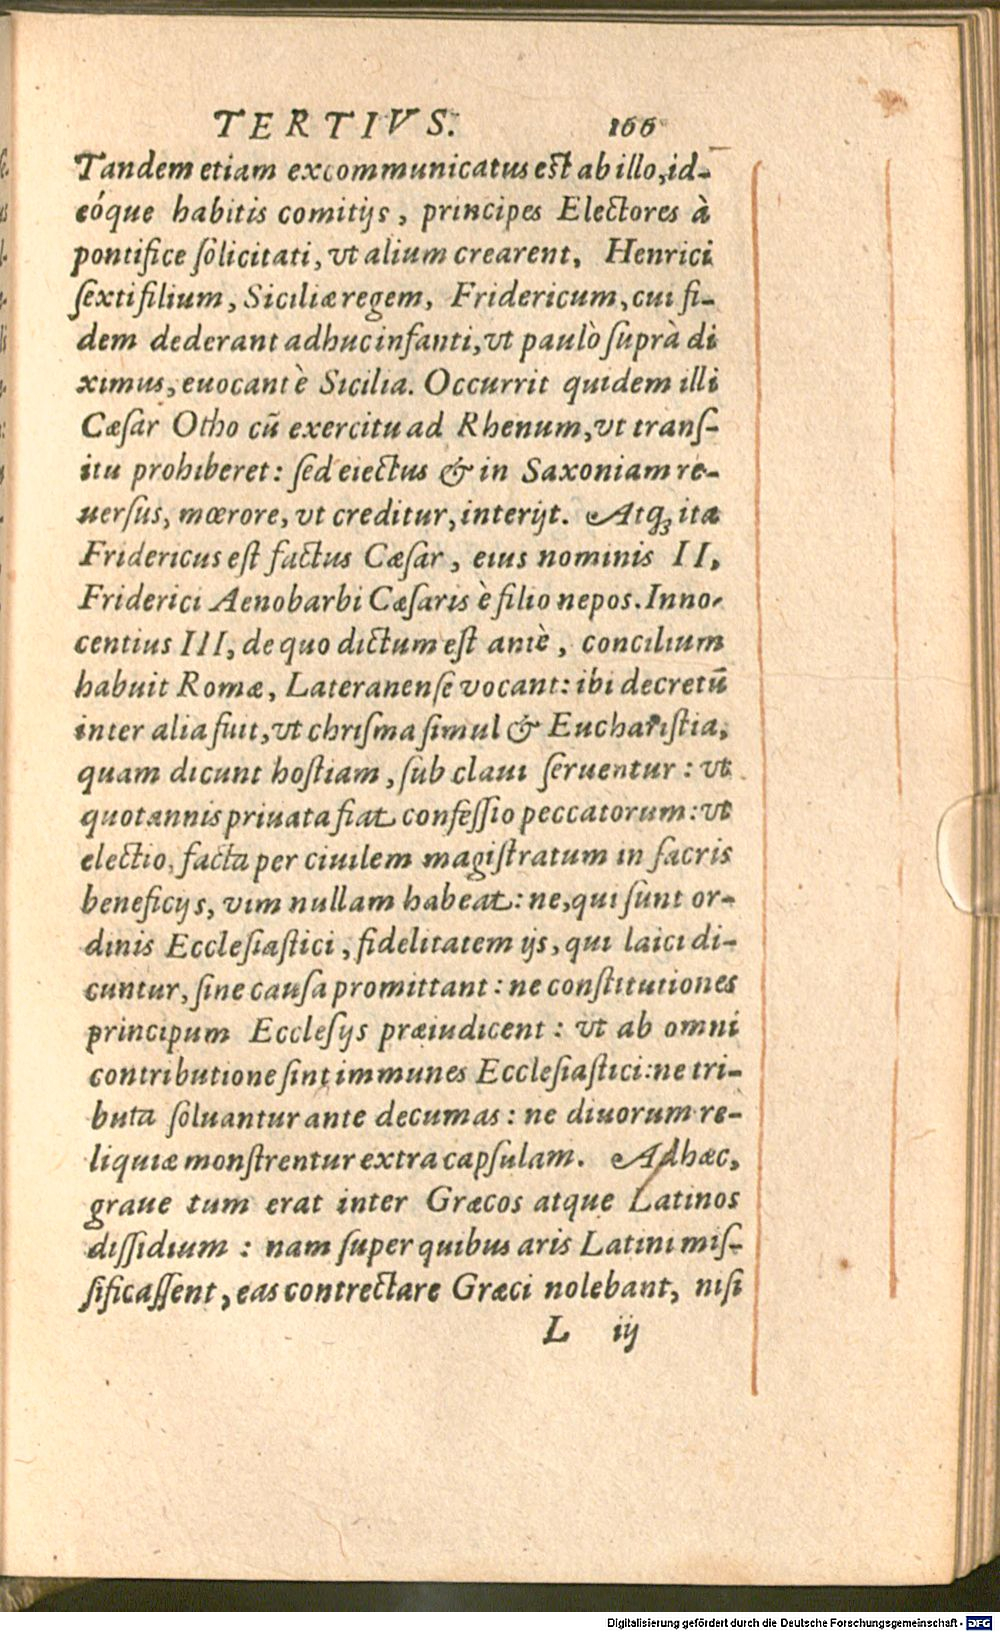 TERTIVS. 166
Tandem etiam excommunicatus est ab illo, id-
eóque habitis comitijs, principes Electores à
pontifice ſolicitati, vt alium crearent, Henrici
ſexti filium, Siciliæ regem, Fridericum, cui fi-
dem dederant adhuc infanti, vt paulò ſuprà di
ximus, euocant è Sicilia. Occurrit quidem illi
Cæſar Otho cū exercitu ad Rhenum, vt tranſ-
itu prohiberet: ſed eiectus & in Saxoniam re-
uerſus, mœrore, vt creditur, interijt. Atq; ita
Fridericus eſt factus Cæſar, eius nominis II,
Friderici Aenobarbi Cæſaris è filio nepos. Inno-
centius III, de quo dictum eſt antè, concilium
habuit Romæ, Lateranenſe vocant: ibi decretū
inter alia fuit, vt chriſma ſimul & Euchariſtia,
quam dicunt hoſtiam, ſub claui ſeruentur: vt
quotannis priuata fiat confeſſio peccatorum: vt
electio, facta per ciuilem magiſtratum in ſacris
beneficijs, vim nullam habeat: ne, qui ſunt or-
dinis Eccleſiaſtici, fidelitatem ijs, qui laici di-
cuntur, ſine cauſa promittant: ne conſtitutiones
principum Eccleſijs præiudicent: vt ab omni
contributione ſint immunes Eccleſiaſtici: ne tri-
buta ſoluantur ante decumas: ne diuorum re-
liquiæ monſtrentur extra capſulam. Adhæc,
graue tum erat inter Græcos atque Latinos
diſſidium: nam ſuper quibus aris Latini miſ-
ſificaſſent, eas contrectare Græci nolebant, niſi
L iij
Digitalisierung gefördert durch die Deutsche Forschungsgemeinschaft - DFG